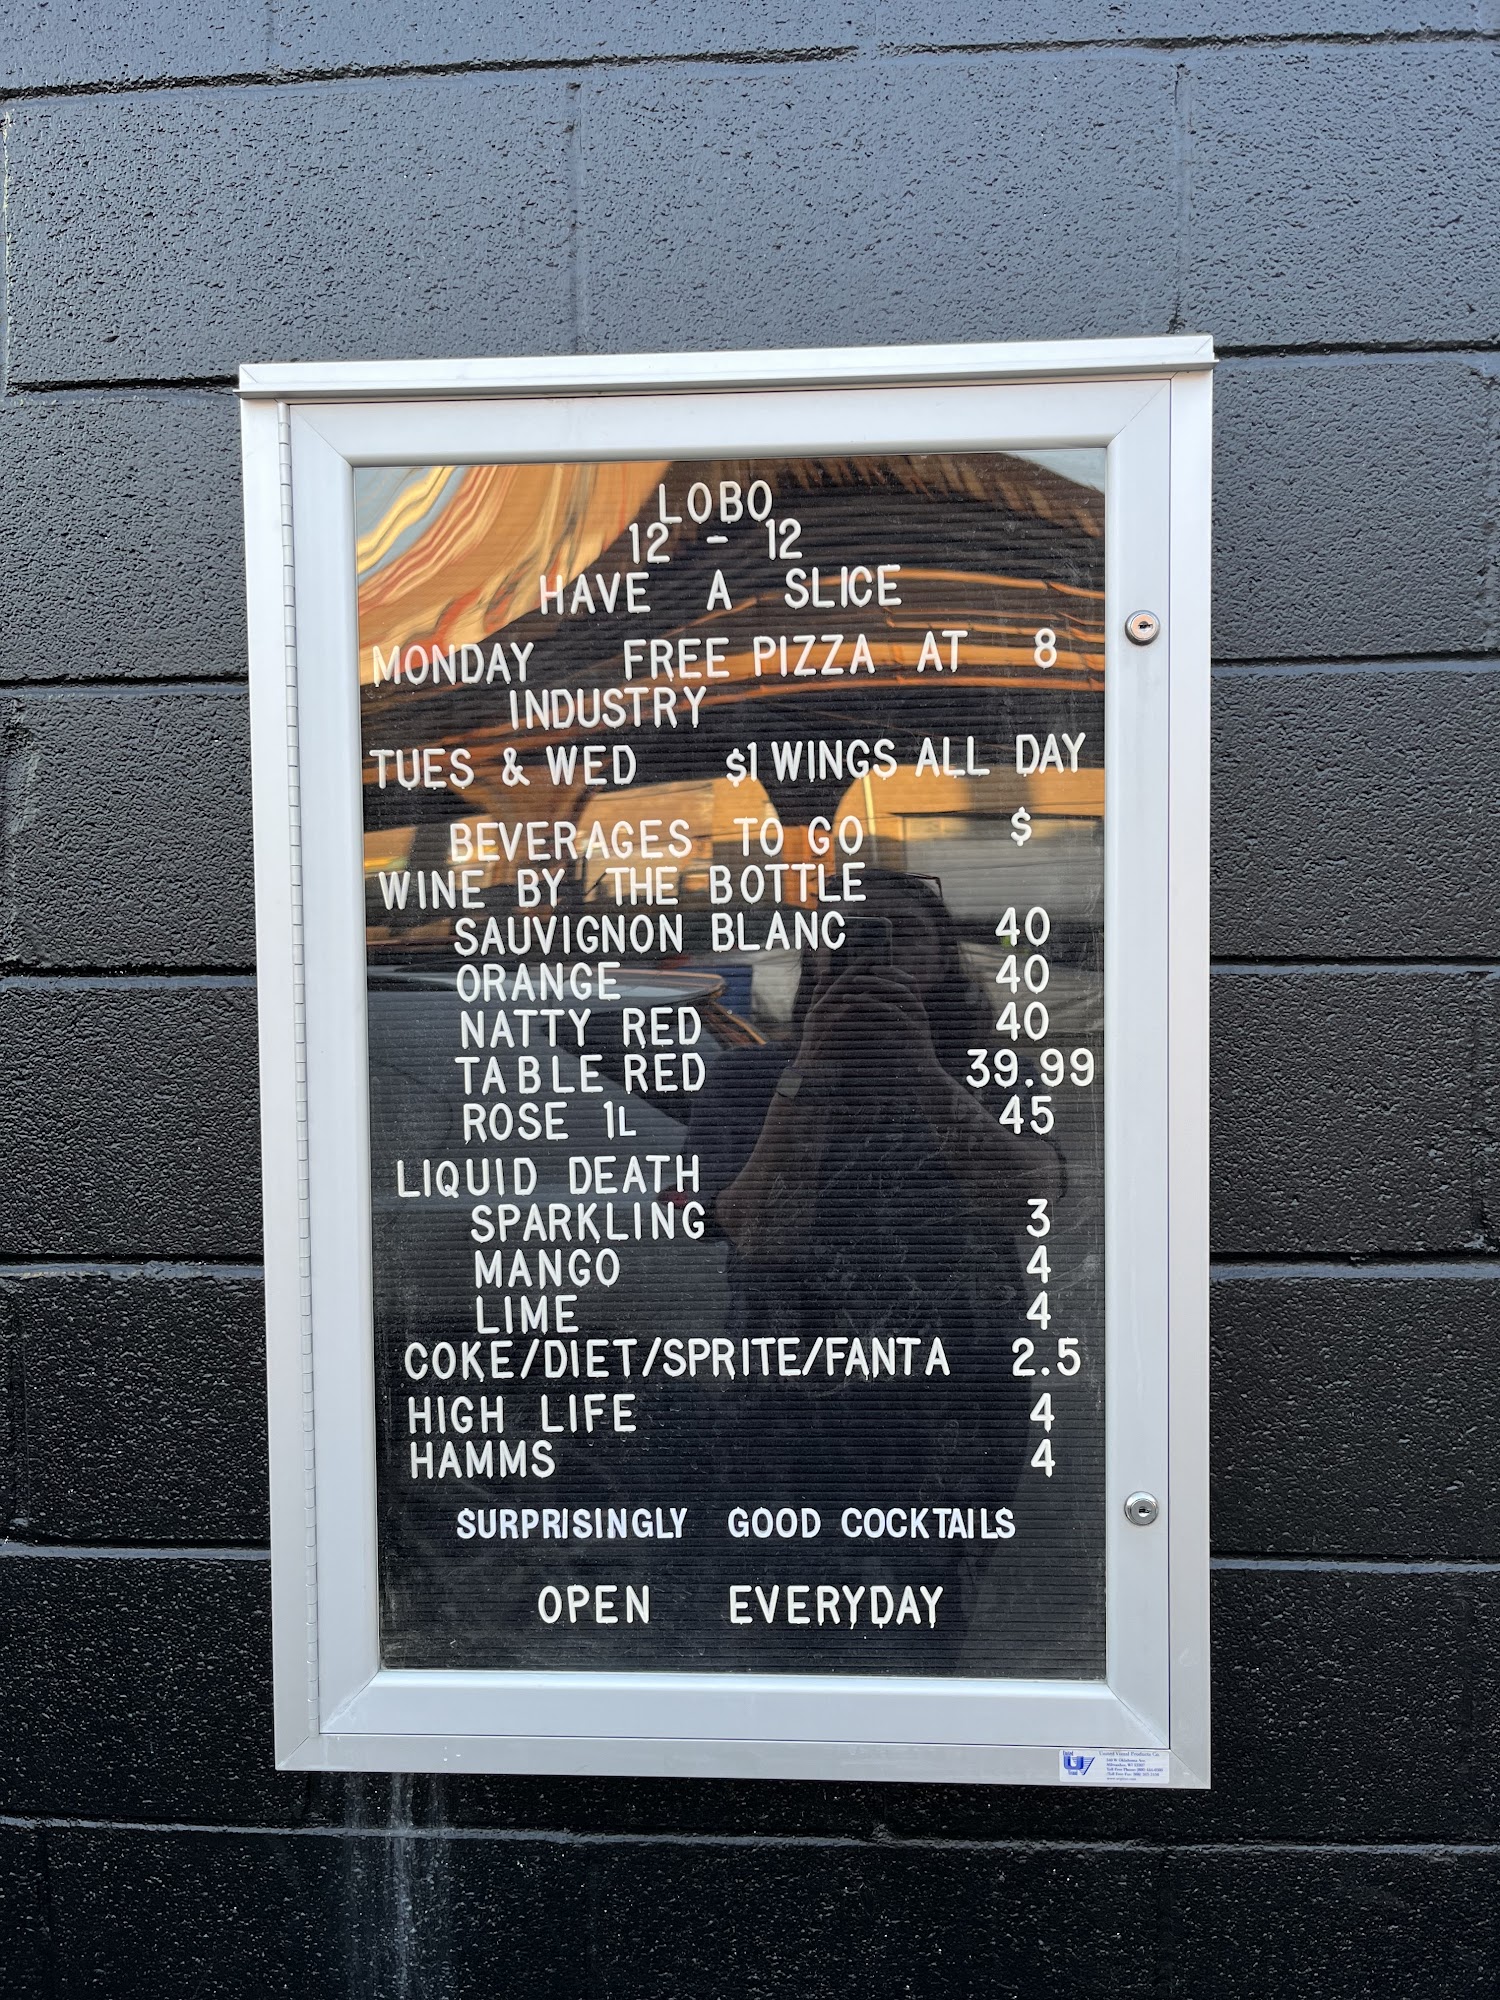 LOBO
12 - 12
HAVE A SLICE
MONDAY FREE PIZZA AT 8
INDUSTRY
TUES & WED $1 WINGS ALL DAY
BEVERAGES TO GO $
WINE BY THE BOTTLE
SAUVIGNON BLANC 40
ORANGE 40
NATTY RED 40
TABLE RED 39.99
ROSE 1L 45
LIQUID DEATH
SPARKLING 3
MANGO 4
LIME 4
COKE/DIET/SPRITE/FANTA 2.5
HIGH LIFE 4
HAMMS 4
SURPRISINGLY GOOD COCKTAILS
OPEN EVERYDAY
United Visual Products Co.